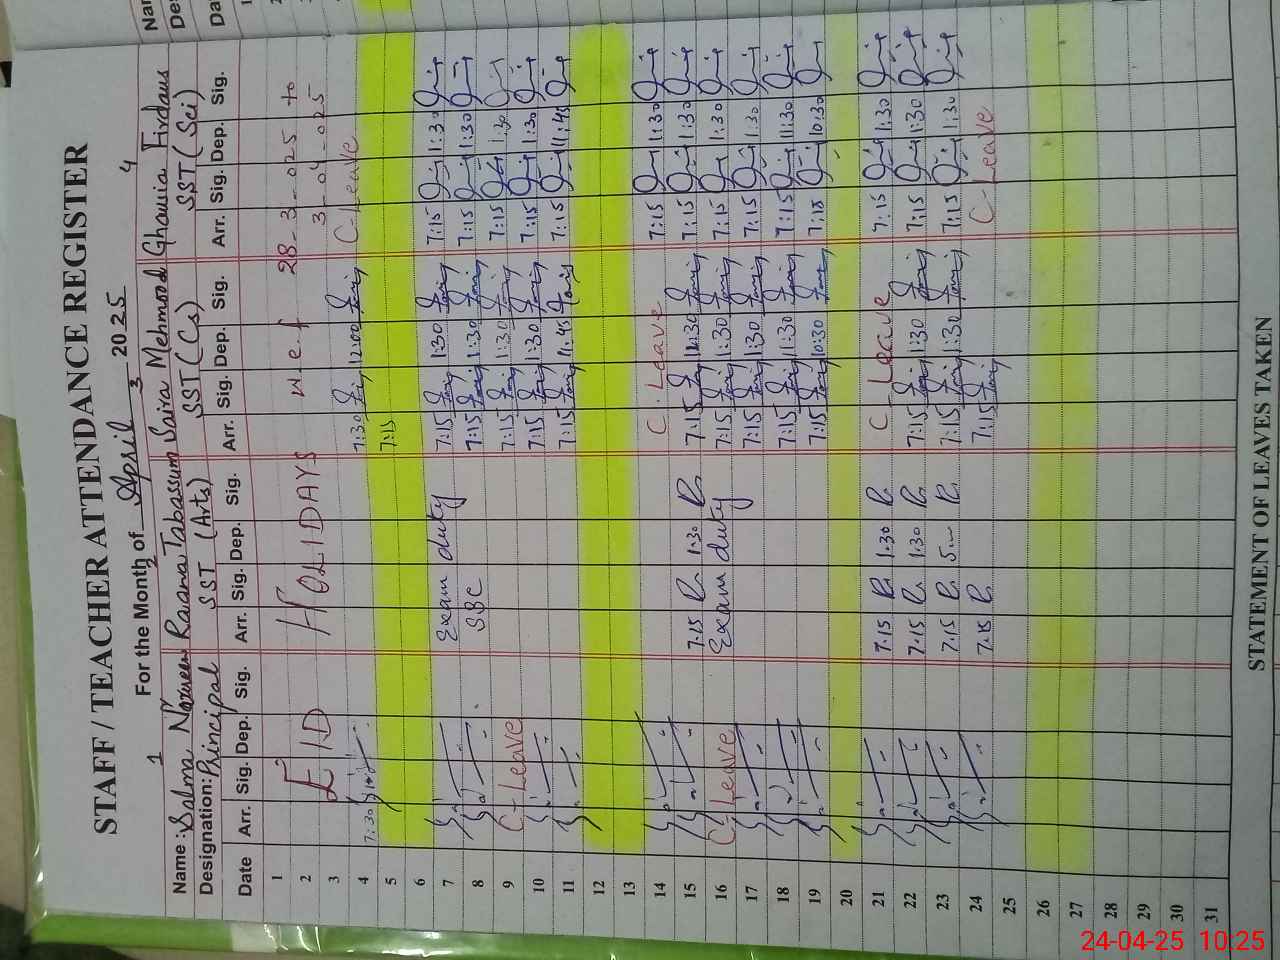 STAFF / TEACHER ATTENDANCE REGISTER
For the Month of April 2025
1 2 3 4
Name : Salma Nasreen Raana Tabassum Saira Mehmood Ghausia Firdaus
Designation: Principal SST (Arts) SST (Cs) SST (Sci)
Date Arr. Sig. Dep. Sig. Arr. Sig. Dep. Sig. Arr. Sig. Dep. Sig. Arr. Sig. Dep. Sig.
1
2 EID HOLIDAYS w.e.f 28-3-025 to
3 3-04-025
4 7:30 7:30 12:00 C-Leave
5 7:15
6
7 Exam duty 7:15 1:30 7:15 1:30
8 SBC 7:15 1:30 7:15 1:30
9 C-Leave 7:15 1:30 7:15 1:30
10 7:15 1:30 7:15 1:30
11 7:15 11:45 7:15 11:45
12
13
14 C-Leave 7:15 1:30
15 7:15 1:30 7:15 12:30 7:15 1:30
16 C-Leave Exam duty 7:15 1:30 7:15 1:30
17 7:15 1:30 7:15 1:30
18 7:15 11:30 7:15 11:30
19 7:15 10:30 7:15 10:30
20
21 7:15 1:30 C-Leave 7:15 1:30
22 7:15 1:30 7:15 1:30 7:15 1:30
23 7:15 7:15 1:30 7:15 1:30
24 7:15 7:15 C-Leave
25
26
27
28
29
30
31
STATEMENT OF LEAVES TAKEN
24-04-25 10:25